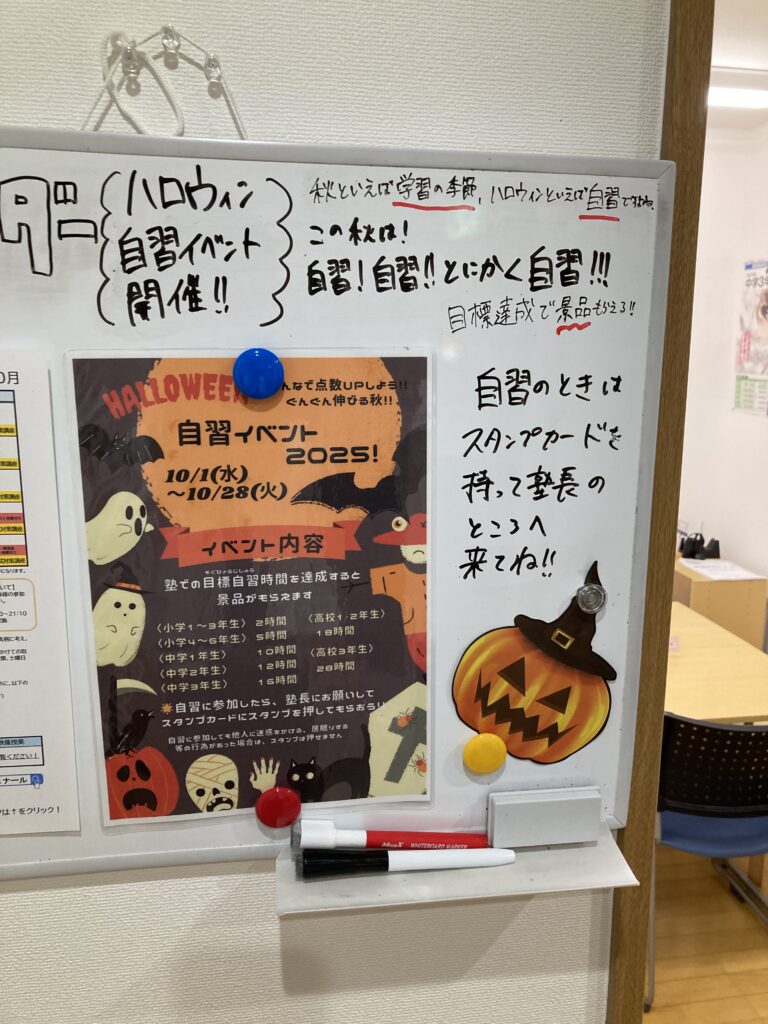 ダー
ハロウィン
自習イベント
開催!!
秋といえば学習の季節、ハロウィンといえば自習ですよね
この秋は!
自習!自習!!とにかく自習!!!
目標達成で景品もらえる!!
自習のときは
スタンプカードを
持って塾長の
ところへ
来てね!!
HALLOWEEN
んなで点数UPしよう!!
ぐんぐん伸びる秋!!
自習イベント
2025!
10/1(水)
~10/28(火)
イベント内容
もくひょうじしゅう
塾での目標自習時間を達成すると
景品がもらえます
〈小学1~3年生〉 2時間
〈小学4~6年生〉 5時間
〈中学1年生〉 10時間
〈中学2年生〉 12時間
〈中学3年生〉 16時間
〈高校1・2年生〉
18時間
〈高校3年生〉
28時間
☀自習に参加したら、塾長にお願いして
スタンプカードにスタンプを押してもらおう!!
自習に参加しても他人に迷惑をかける、居眠りする
等の行為があった場合は、スタンプは押せません
0月
~21:10
映像授業
覧ください!
ミナール
中は↑をクリック!
WHITEBOARD MARKER
中学3年